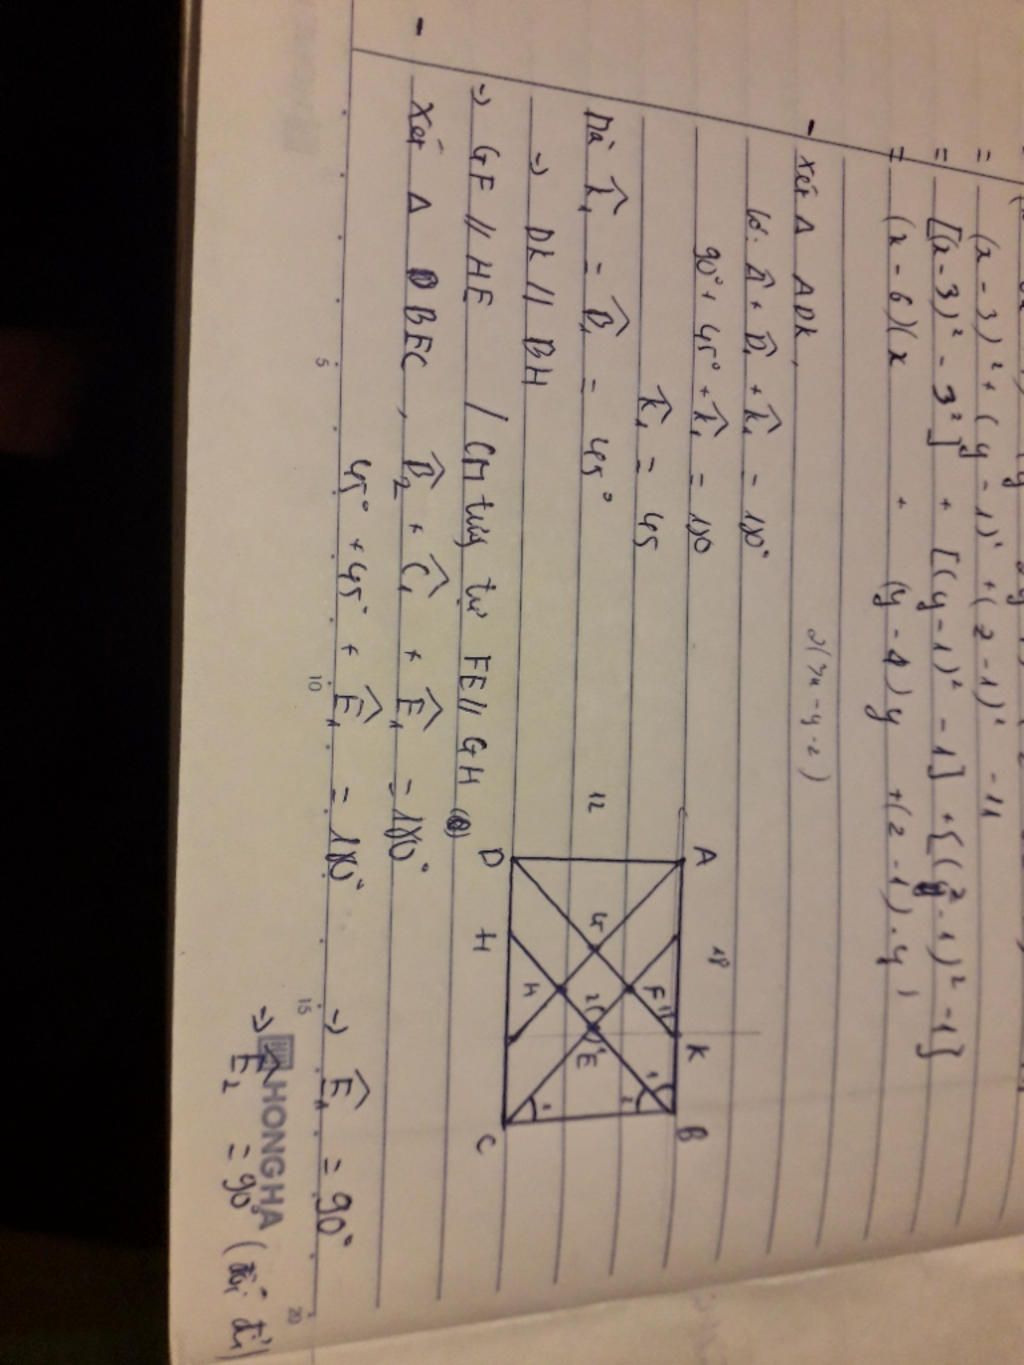 = (x-3)² + (y-1)² + (z-1)² - 11
= [(x-3)² - 3²] + [(y-1)² - 1] + [(z-1)² - 1]
= (x-6)(x + (y-4)y + (z-1).y)
- xét Δ ADK,
có: Â + D̂₁ + K̂₁ = 180°
90° + 45° + K̂₁ = 180
K̂₁ = 45
Mà K̂₁ = B̂₁ = 45°
→ DK // BH
→ GF // HE / CM tương tự FE // GH
- Xét Δ BEC, B̂₂ + Ĉ₁ + Ê₁ = 180°
45° + 45° + Ê₁ = 180° → Ê₁ = 90°
→ Ê₂ = 90° (đối đỉnh)
A 18 K B
12
F 1
G 2 1 E
H
1 2 1
D H C
5 10 15 20
HONG HA